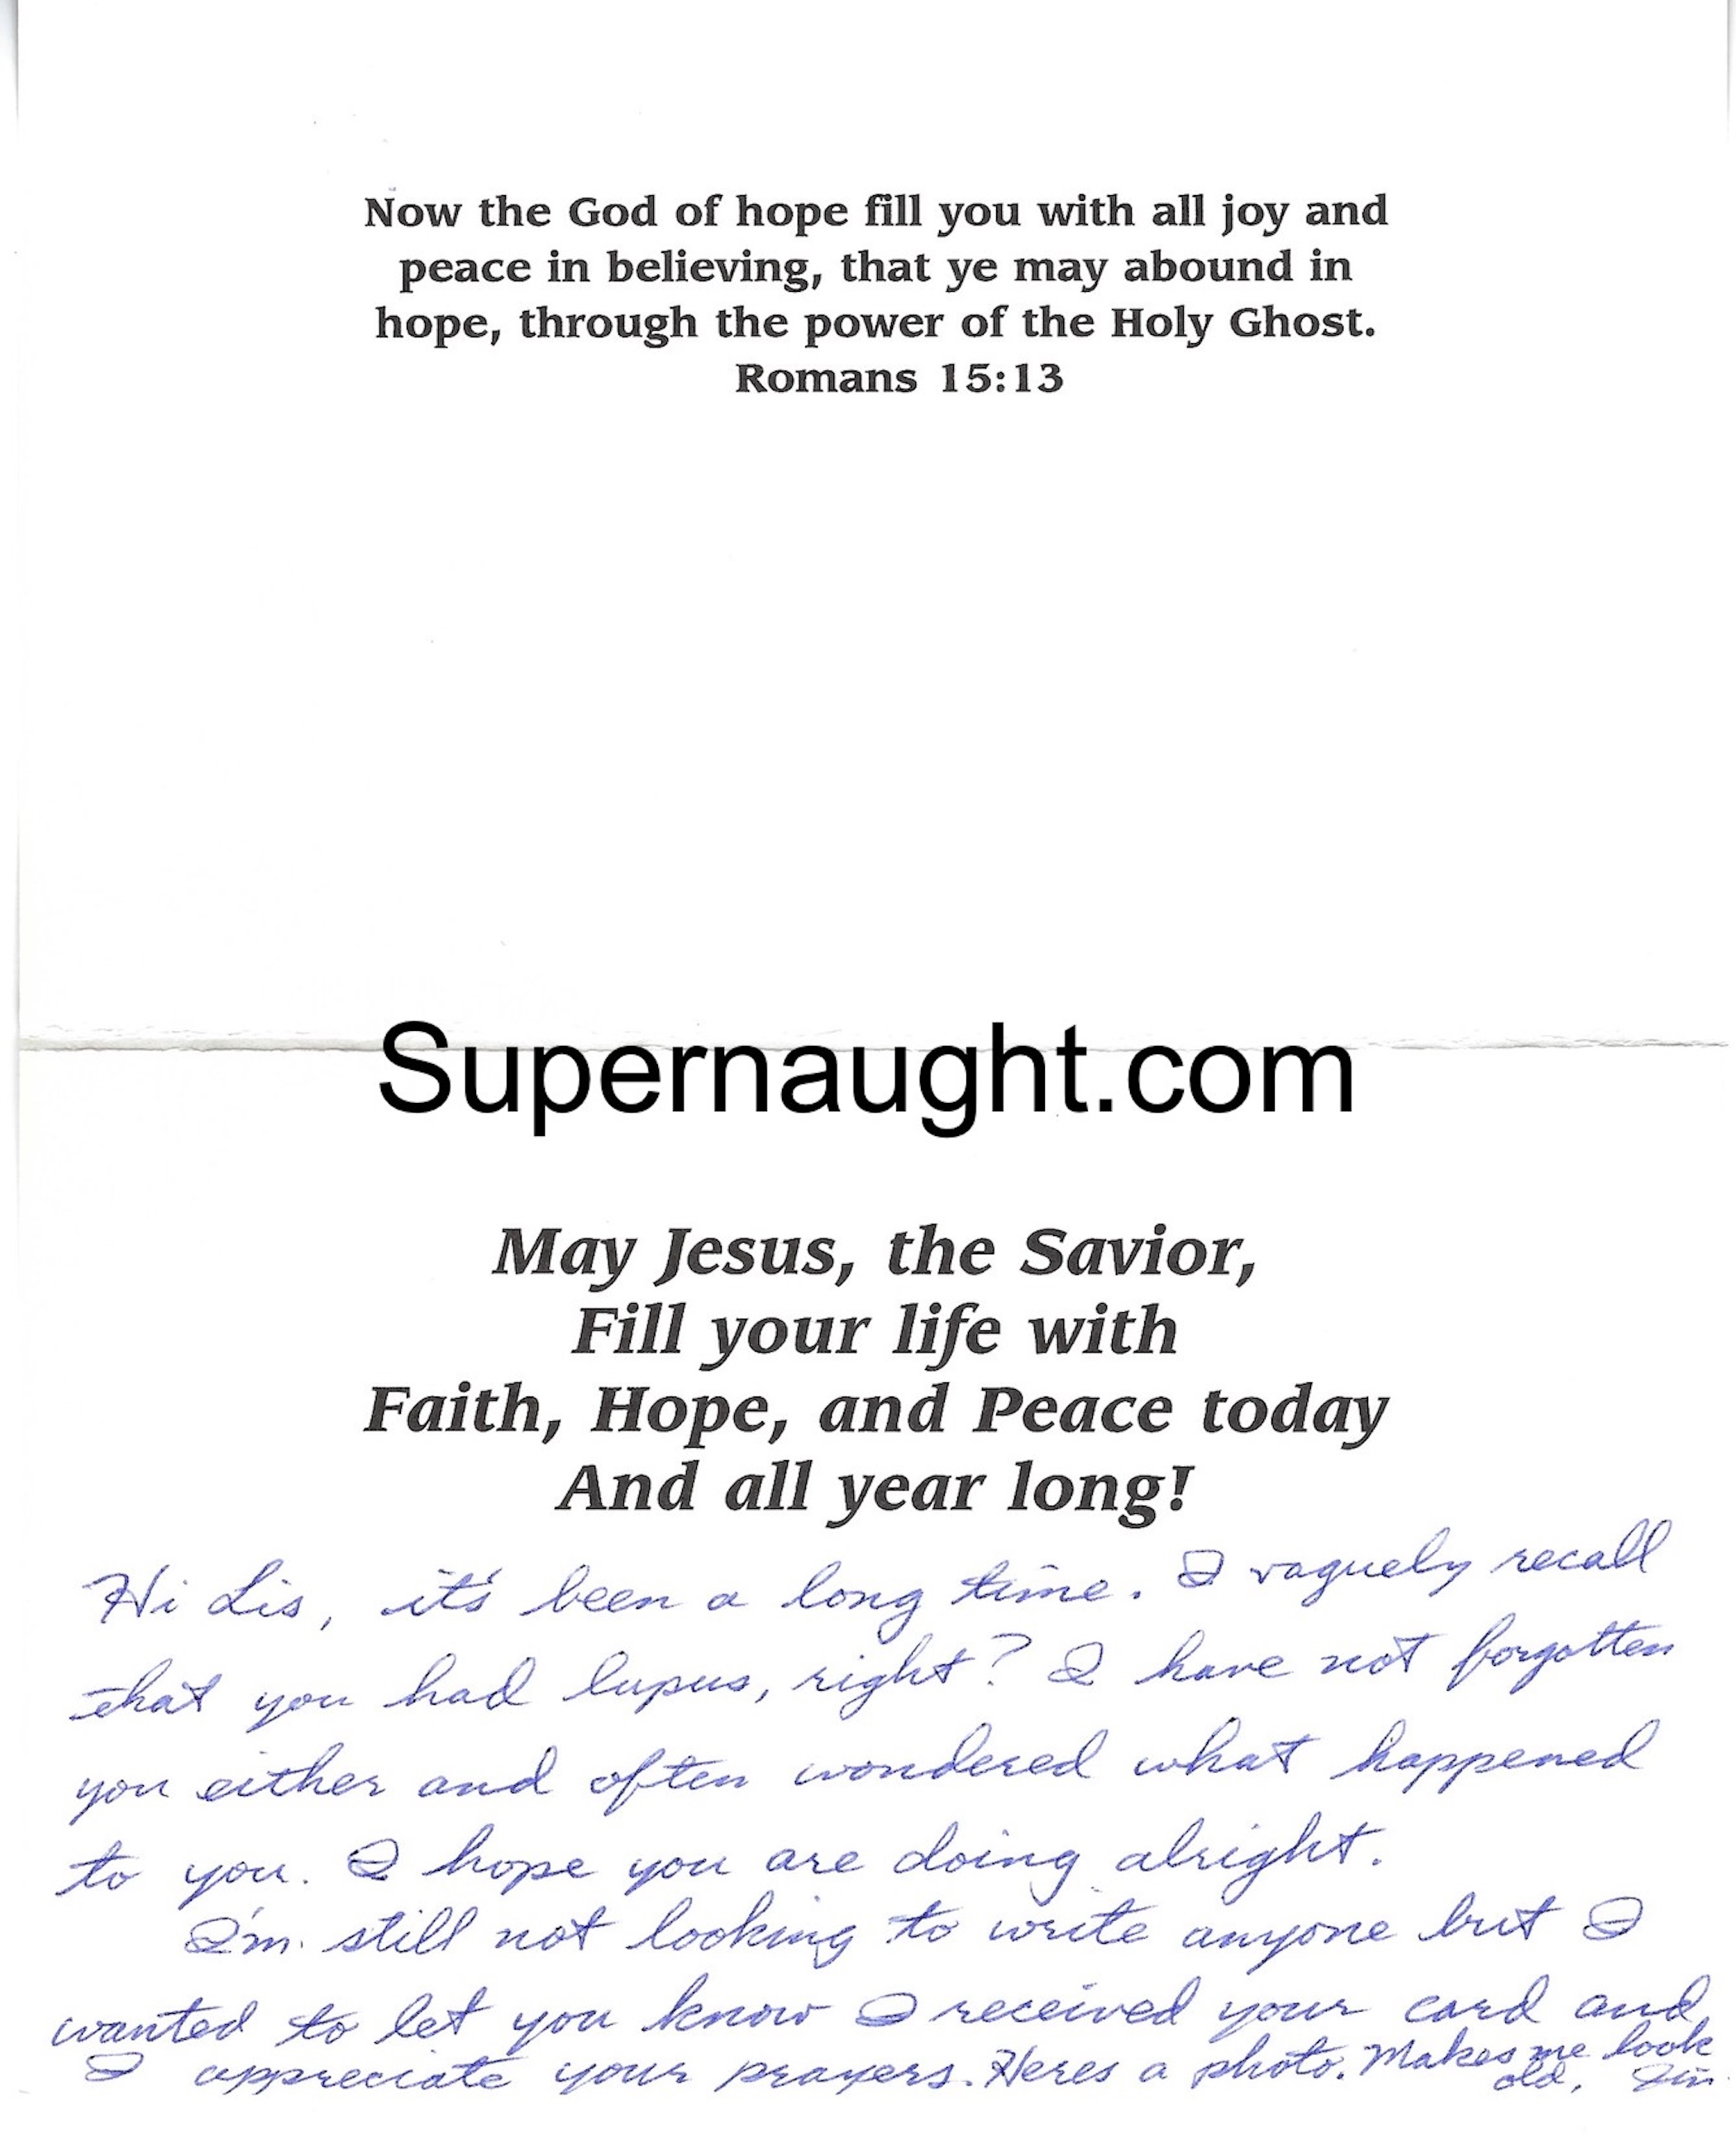 Now the God of hope fill you with all joy and
peace in believing, that ye may abound in
hope, through the power of the Holy Ghost.
Romans 15:13
Supernaught.com
May Jesus, the Savior,
Fill your life with
Faith, Hope, and Peace today
And all year long!
Hi Lis, it's been a long time. I vaguely recall
that you had lupus, right? I have not forgotten
you either and often wondered what happened
to you. I hope you are doing alright.
I'm still not looking to write anyone but I
wanted to let you know I received your card and
I appreciate your prayers. Heres a photo. Makes me look
old. Jim